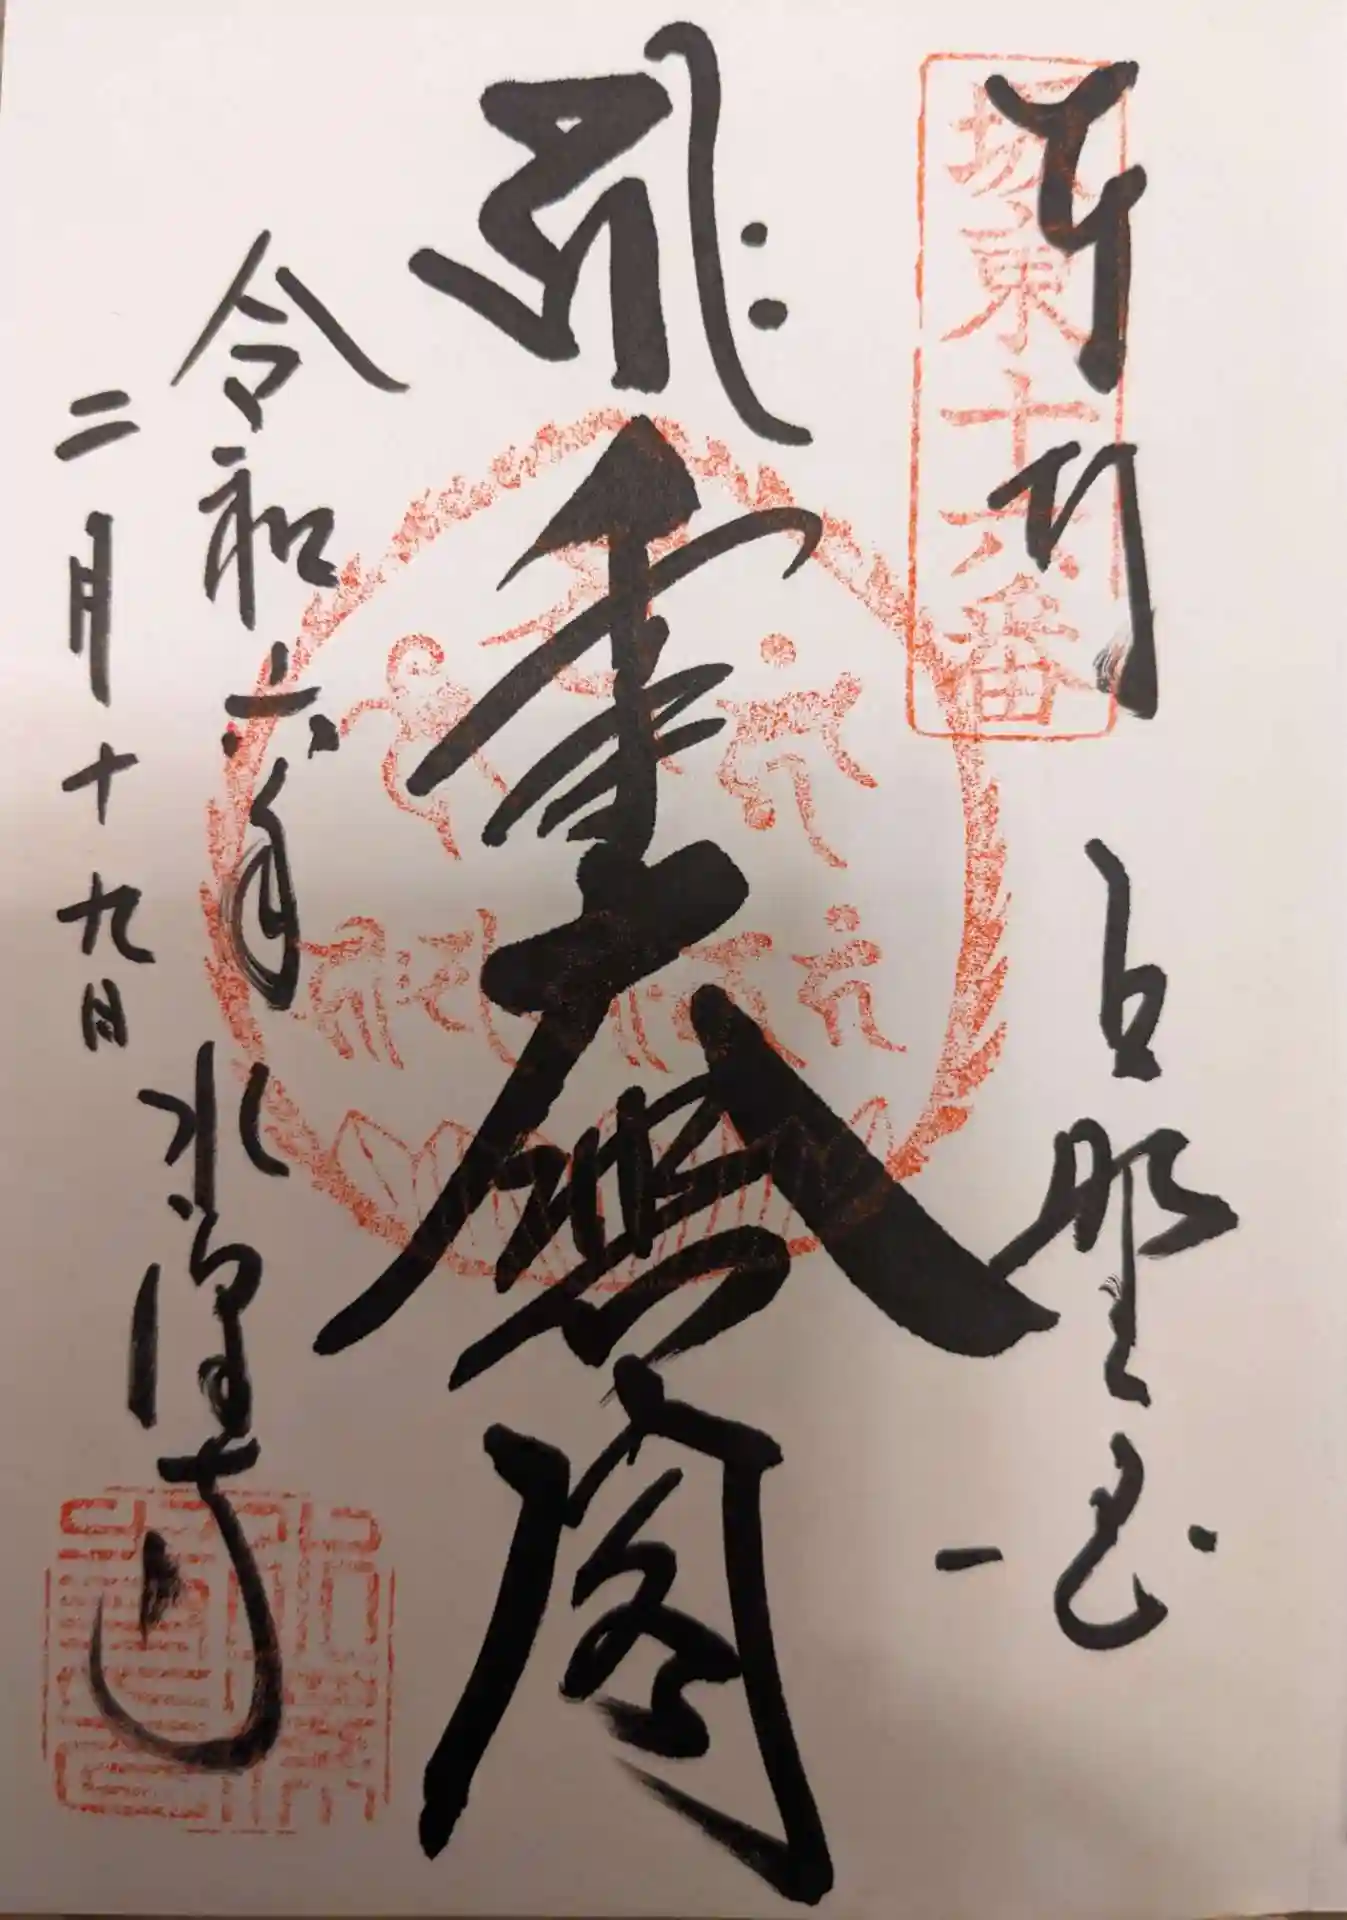 奉拝
坂東十六番
上野国
ह्रीः
千手大悲閣
令和六年
二月十九日
水澤寺